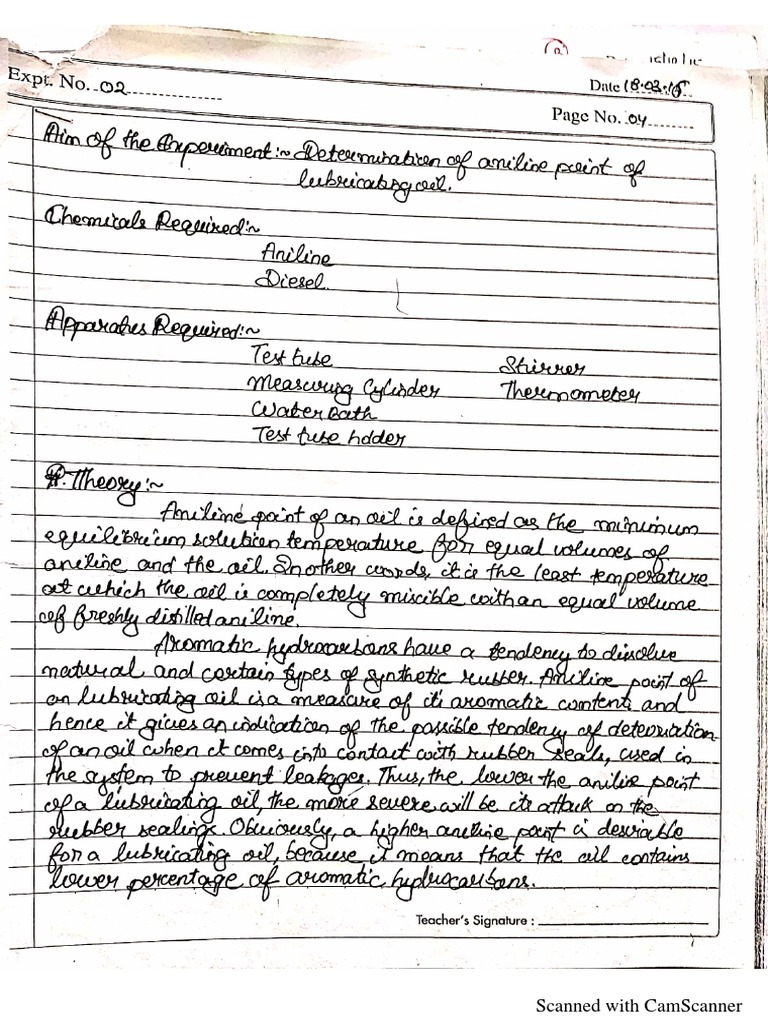 Expt. No. 02
Date 18.03.15
Page No. 04
Aim of the Experiment:~ Determination of aniline point of
lubricating oil.
Chemicals Required:~
Aniline
Diesel
Apparatus Required:~
Test tube Stirrer
Measuring Cylinder Thermometer
Water Bath
Test tube holder
Theory:~
Aniline point of an oil is defined as the minimum
equilibrium solution temperature for equal volumes of
aniline and the oil. In other words, it is the least temperature
at which the oil is completely miscible with an equal volume
of freshly distilled aniline.
Aromatic hydrocarbons have a tendency to dissolve
natural and certain types of synthetic rubber. Aniline point of
an lubricating oil is a measure of its aromatic content and
hence it gives an indication of the possible tendency of deterioration
of an oil when it comes into contact with rubber seals, used in
the system to prevent leakages. Thus, the lower the aniline point
of a lubricating oil, the more severe will be its attack on the
rubber sealings. Obviously, a higher aniline point is desirable
for a lubricating oil, because it means that the oil contains
lower percentage of aromatic hydrocarbons.
Teacher's Signature :
Scanned with CamScanner